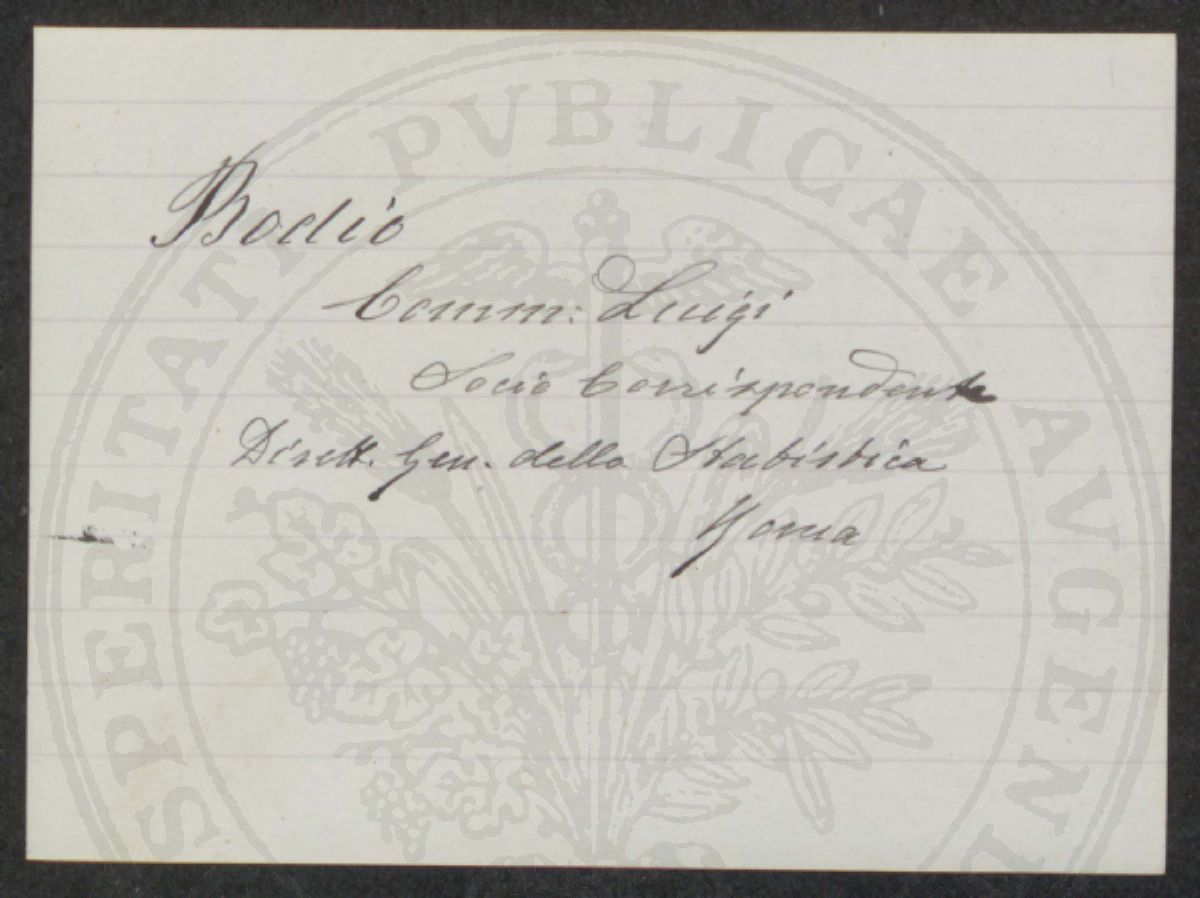 PROSPERITATI PVBLICAE AVGENDAE
Bodio
Comm: Luigi
Socio Corrispondente
Dirett. Gen. della Statistica
Roma